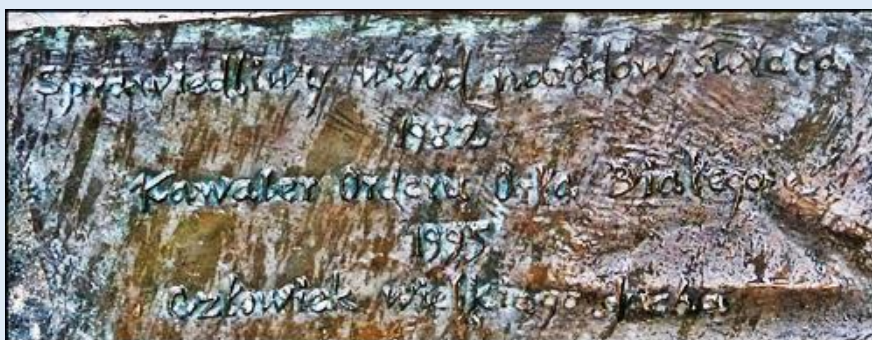 Sprawiedliwy wśród narodów świata
1982
Kawaler Orderu Orła Białego
1995
człowiek wielkiego ducha